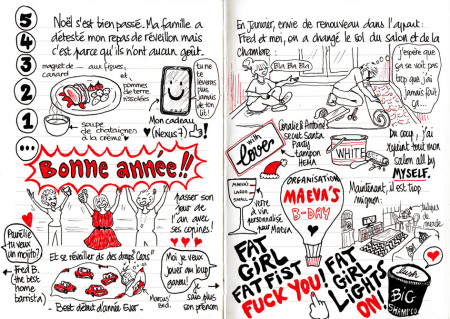 5
4
3
2
1...
...
Noël s'est bien passé. Ma famille a
détesté mon repas de réveillon mais
c'est parce qu'ils n'ont aucun goût.
magret de
canard
aux figues,
et
pommes
de terre
rissolées
tu ne
te
lèveras
plus
jamais
de ton
lit!
soupe
de chataîgnes
à la crème ♥
Mon cadeau
(Nexus 4)
BONNE ANNÉE!!
passer son
jour de
l'an avec
ses copines!
Aurélie
tu veux
un mojito?
← Fred B.
(the best
home
barista)
Et se réveiller de dans "draps Cars"
Moi je veux
jouer au loup
garou!
Marcus'
Bed.
je
sais plus
son prénom
- Best début d'année Ever -
En Janvier, envie de renouveau dans l'appart:
Fred et moi, on a changé le sol du salon et de la
chambre:
BLA BLA BLA
j'espère que
ça se voit pas
trop que j'ai
jamais fait
ça...
with
love
Coralie & Antoine's
Secret Santa
Party
→ tampon
HEMA
WHITE
Du coup, j'ai
repeint tout mon
salon all by
MYSELF.
Maintenant, il est trop
mignon:
MAEVA'S
LARGE
SMALL
verre
à vin
personnalisé
pour
ORGANISATION
MAEVA'S
B-DAY
FAT
GIRL
FAT FIST
FUCK YOU!
FAT
GIRL
LIGHT
ON!
lush
BIG
SHAMPOO